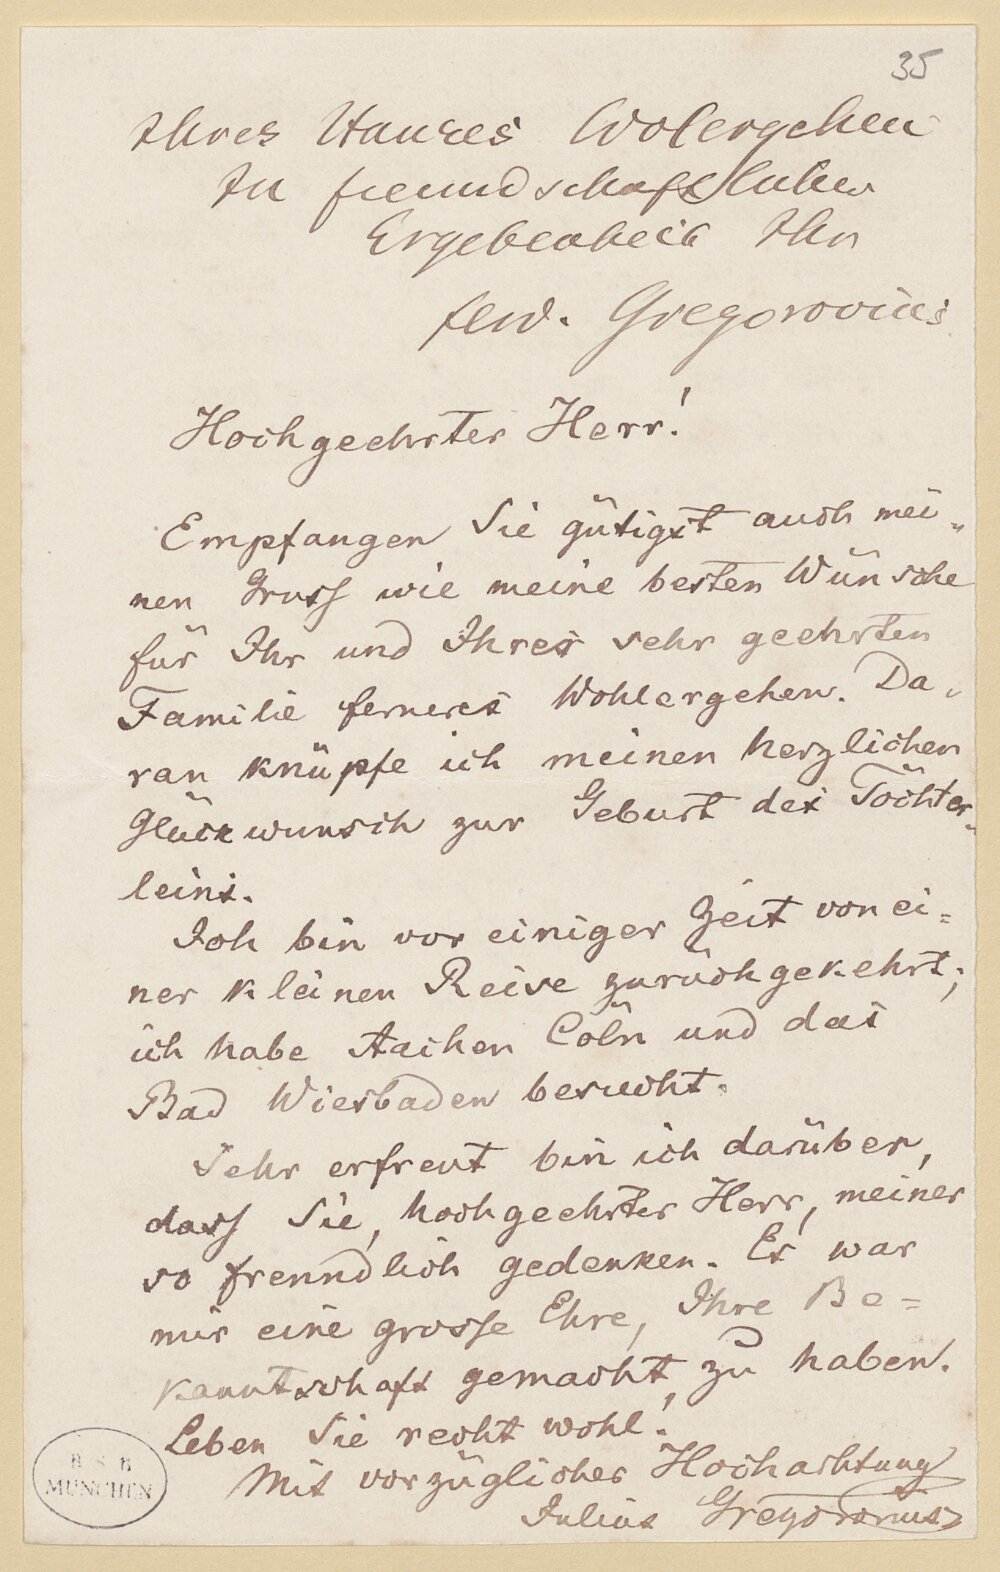 35
Ihres Hauses Wolergehen
In freundschaftlicher
Ergebenheit Ihr
Ferd. Gregorovius
Hochgeehrter Herr!
Empfangen Sie gütigst auch mei-
nen Gruss wie meine besten Wünsche
für Ihr und Ihrer sehr geehrten
Familie ferneres Wohlergehen. Da-
ran knüpfe ich meinen herzlichen
Glückwunsch zur Geburt des Töchter-
leins.
Ich bin vor einiger Zeit von ei=
ner kleinen Reise zurückgekehrt;
ich habe Aachen Cöln und das
Bad Wiesbaden besucht.
Sehr erfreut bin ich darüber,
dass Sie, hochgeehrter Herr, meiner
so freundlich gedenken. Es war
mir eine grosse Ehre, Ihre Be=
kanntschaft gemacht zu haben.
Leben Sie recht wohl!
Mit vorzüglicher Hochachtung
Julius Gregorovius
B S B
MÜNCHEN